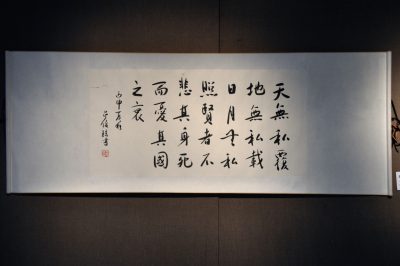 天無私覆
地無私載
日月無私
照賢者不
悲其身死
而憂其國
之衰
丙申
書